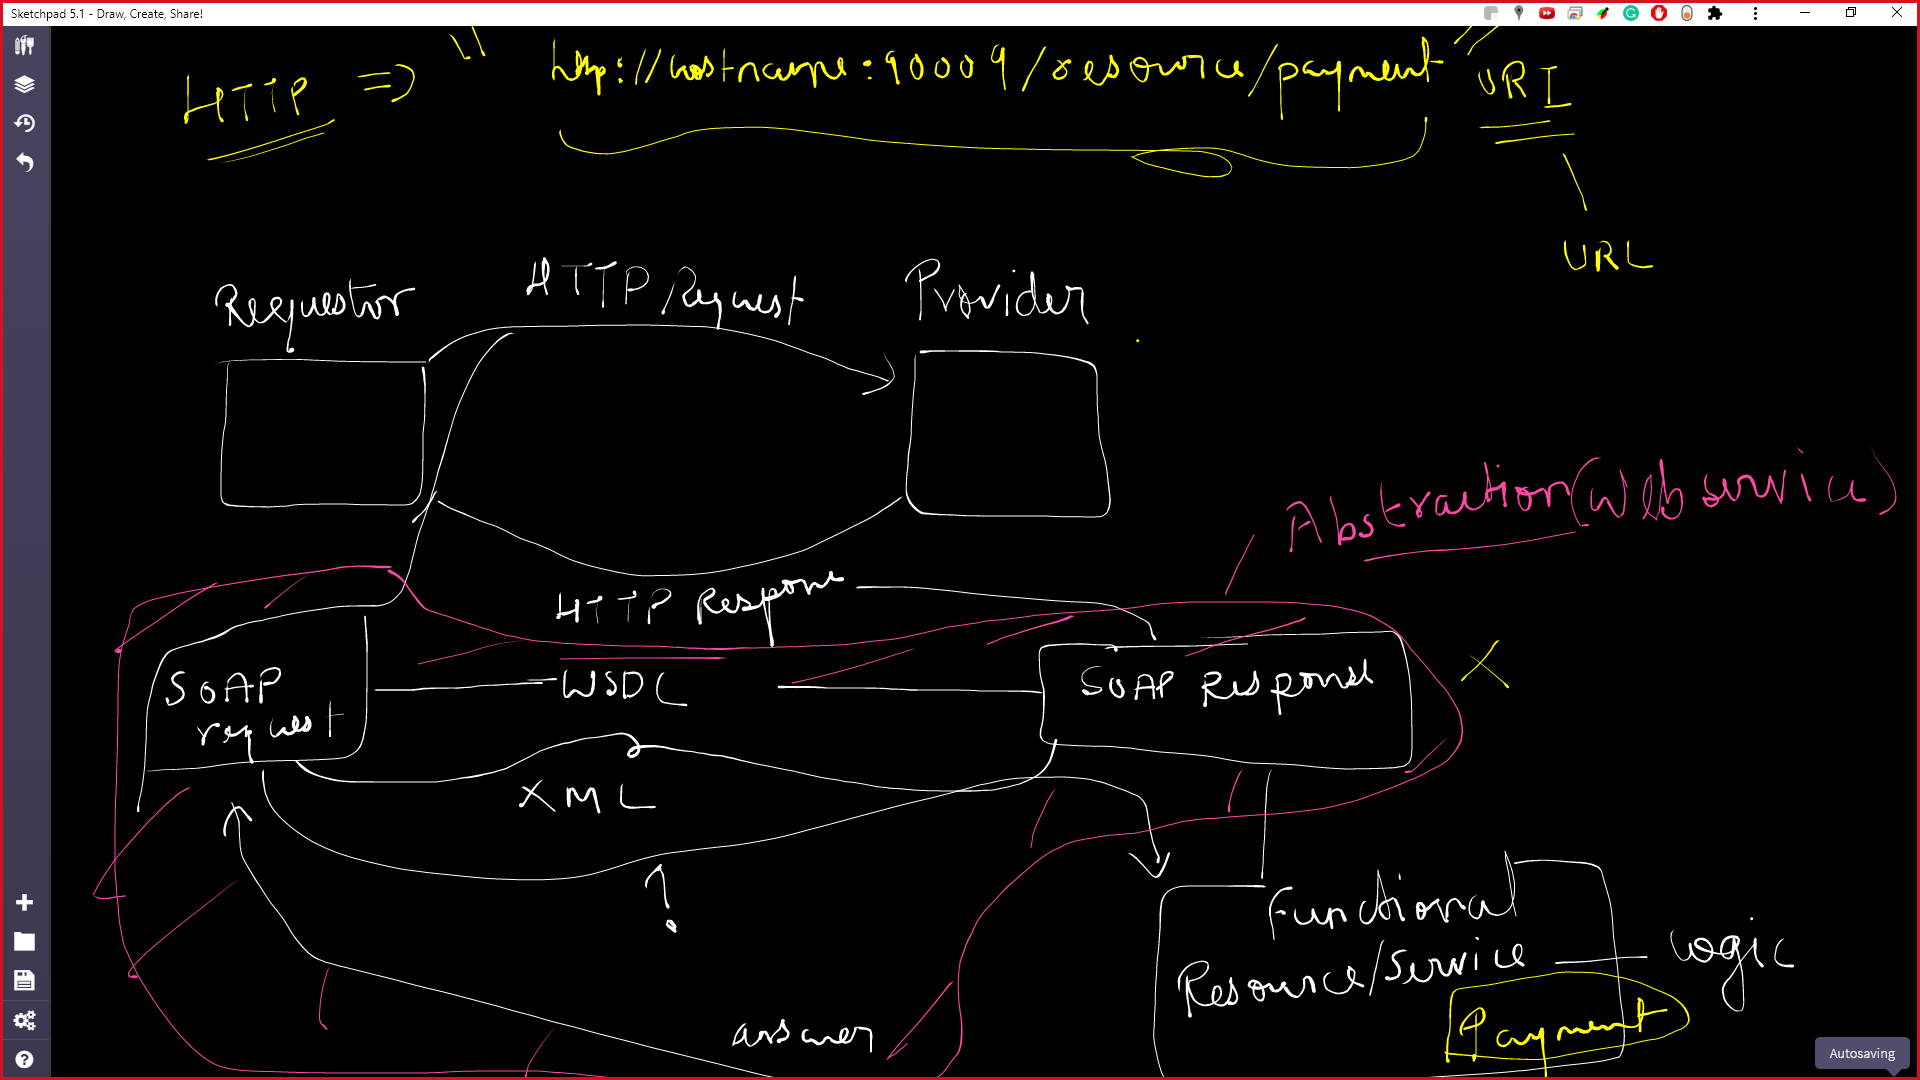 Sketchpad 5.1 - Draw, Create, Share!
HTTP => " http://hostname:90009/resource/payment " URI
URL
Requestor HTTP Request Provider
Abstraction(Webservice)
HTTP Response
SOAP
request
WSDL
SOAP Response
X
XML
?
Functional
Resource/Service
logic
Payment
answer
Autosaving